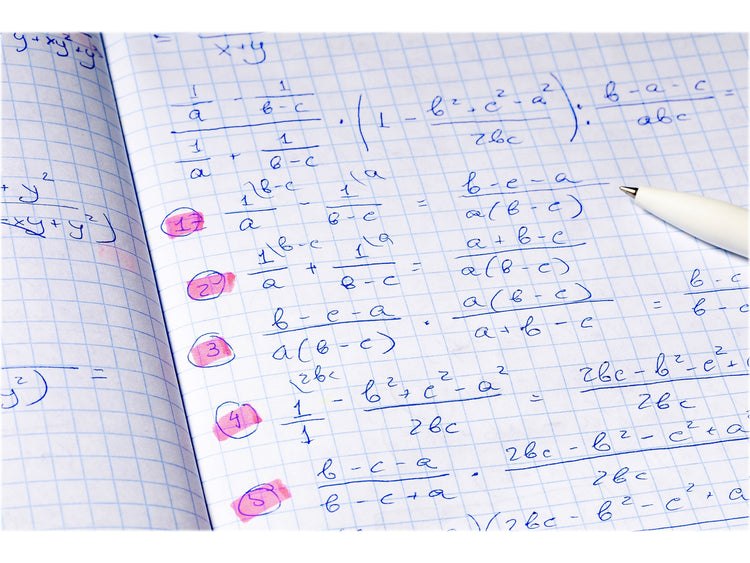 y+xy²+y²
= ——— / x+y
+ y² / -xy+y²)
y²) =
(1/a - 1/(b-c)) / (1/a + 1/(b-c)) · (1 - (b²+c²-a²)/2bc) : (b-a-c)/abc =
1) 1\b-c/a - 1\a/(b-c) = (b-c-a)/a(b-c)
2) 1\b-c/a + 1\a/(b-c) = (a+b-c)/a(b-c)
3 (b-c-a)/a(b-c) · a(b-c)/(a+b-c) = b-c / b-c
4 1\2bc/1 - (b²+c²-a²)/2bc = (2bc-b²-c²+)/2bc
5 (b-c-a)/(b-c+a) · (2bc-b²-c²+a²)/2bc
)(2bc-b²-c²+a